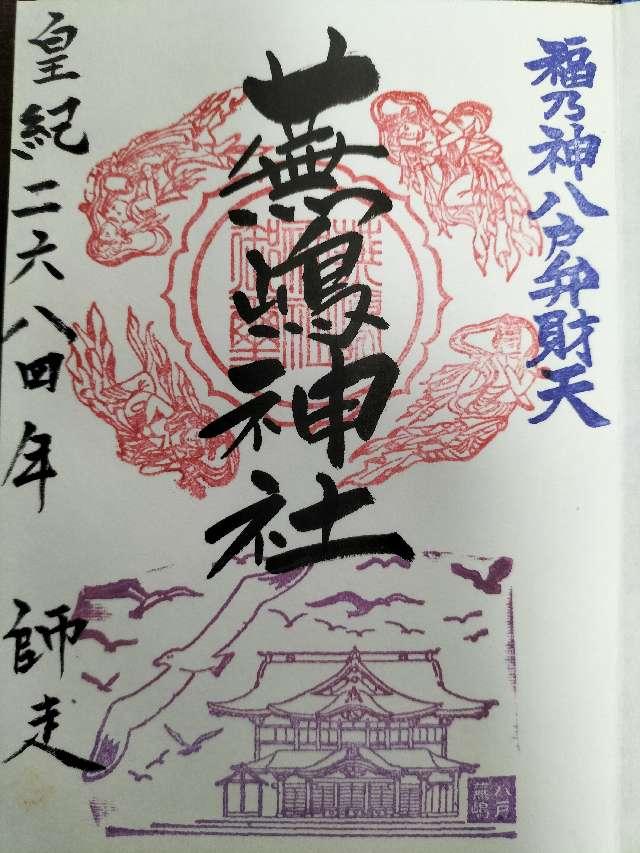 福乃神八戸弁財天
蕪嶋神社
皇紀二六八四年 師走
八戸
蕪嶋